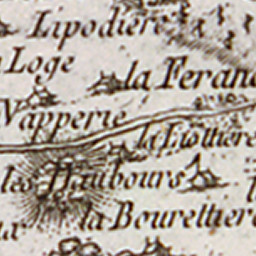 Lipodiere
Loge
la Feran
Napperie
la Liottiere
les Haubours
la Bourettiere